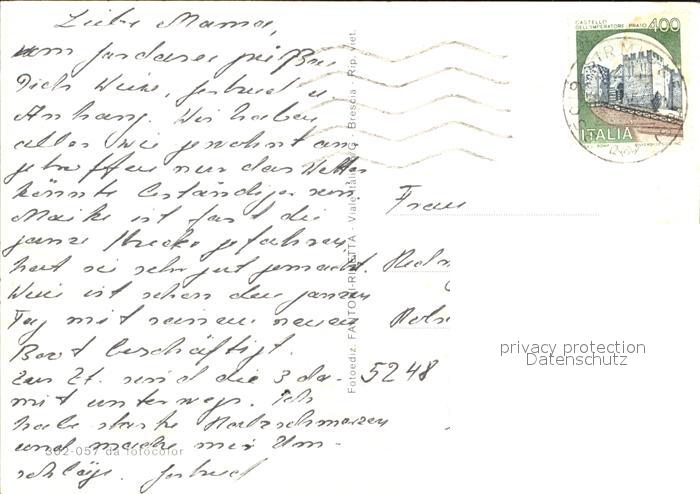 Liebe Mama,
vom Gardasee grüßen
Dich Willi, Gertrud u
Anhang. Wir haben
alles wie gewohnt an-
getroffen nur das Wetter
könnte beständiger sein
Maike ist fast die
ganze Strecke gefahren
hat sie sehr gut gemacht.
Willi ist schon den ganzen
Tag mit seinem neuen
Boot beschäftigt.
Zur Zt. sind die 3 da-
mit unterwegs. Ich
habe starke Halsschmerzen
und mache mir Um-
schläge. Gertrud
302-057 da fotocolor
Fotoediz. FANTONI-RINETTA - Viale Italia - Brescia - Rip. Viet.
CASTELLO
DELL'IMPERATORE PRATO 400
ITALIA
Frau
5248
privacy protection
Datenschutz